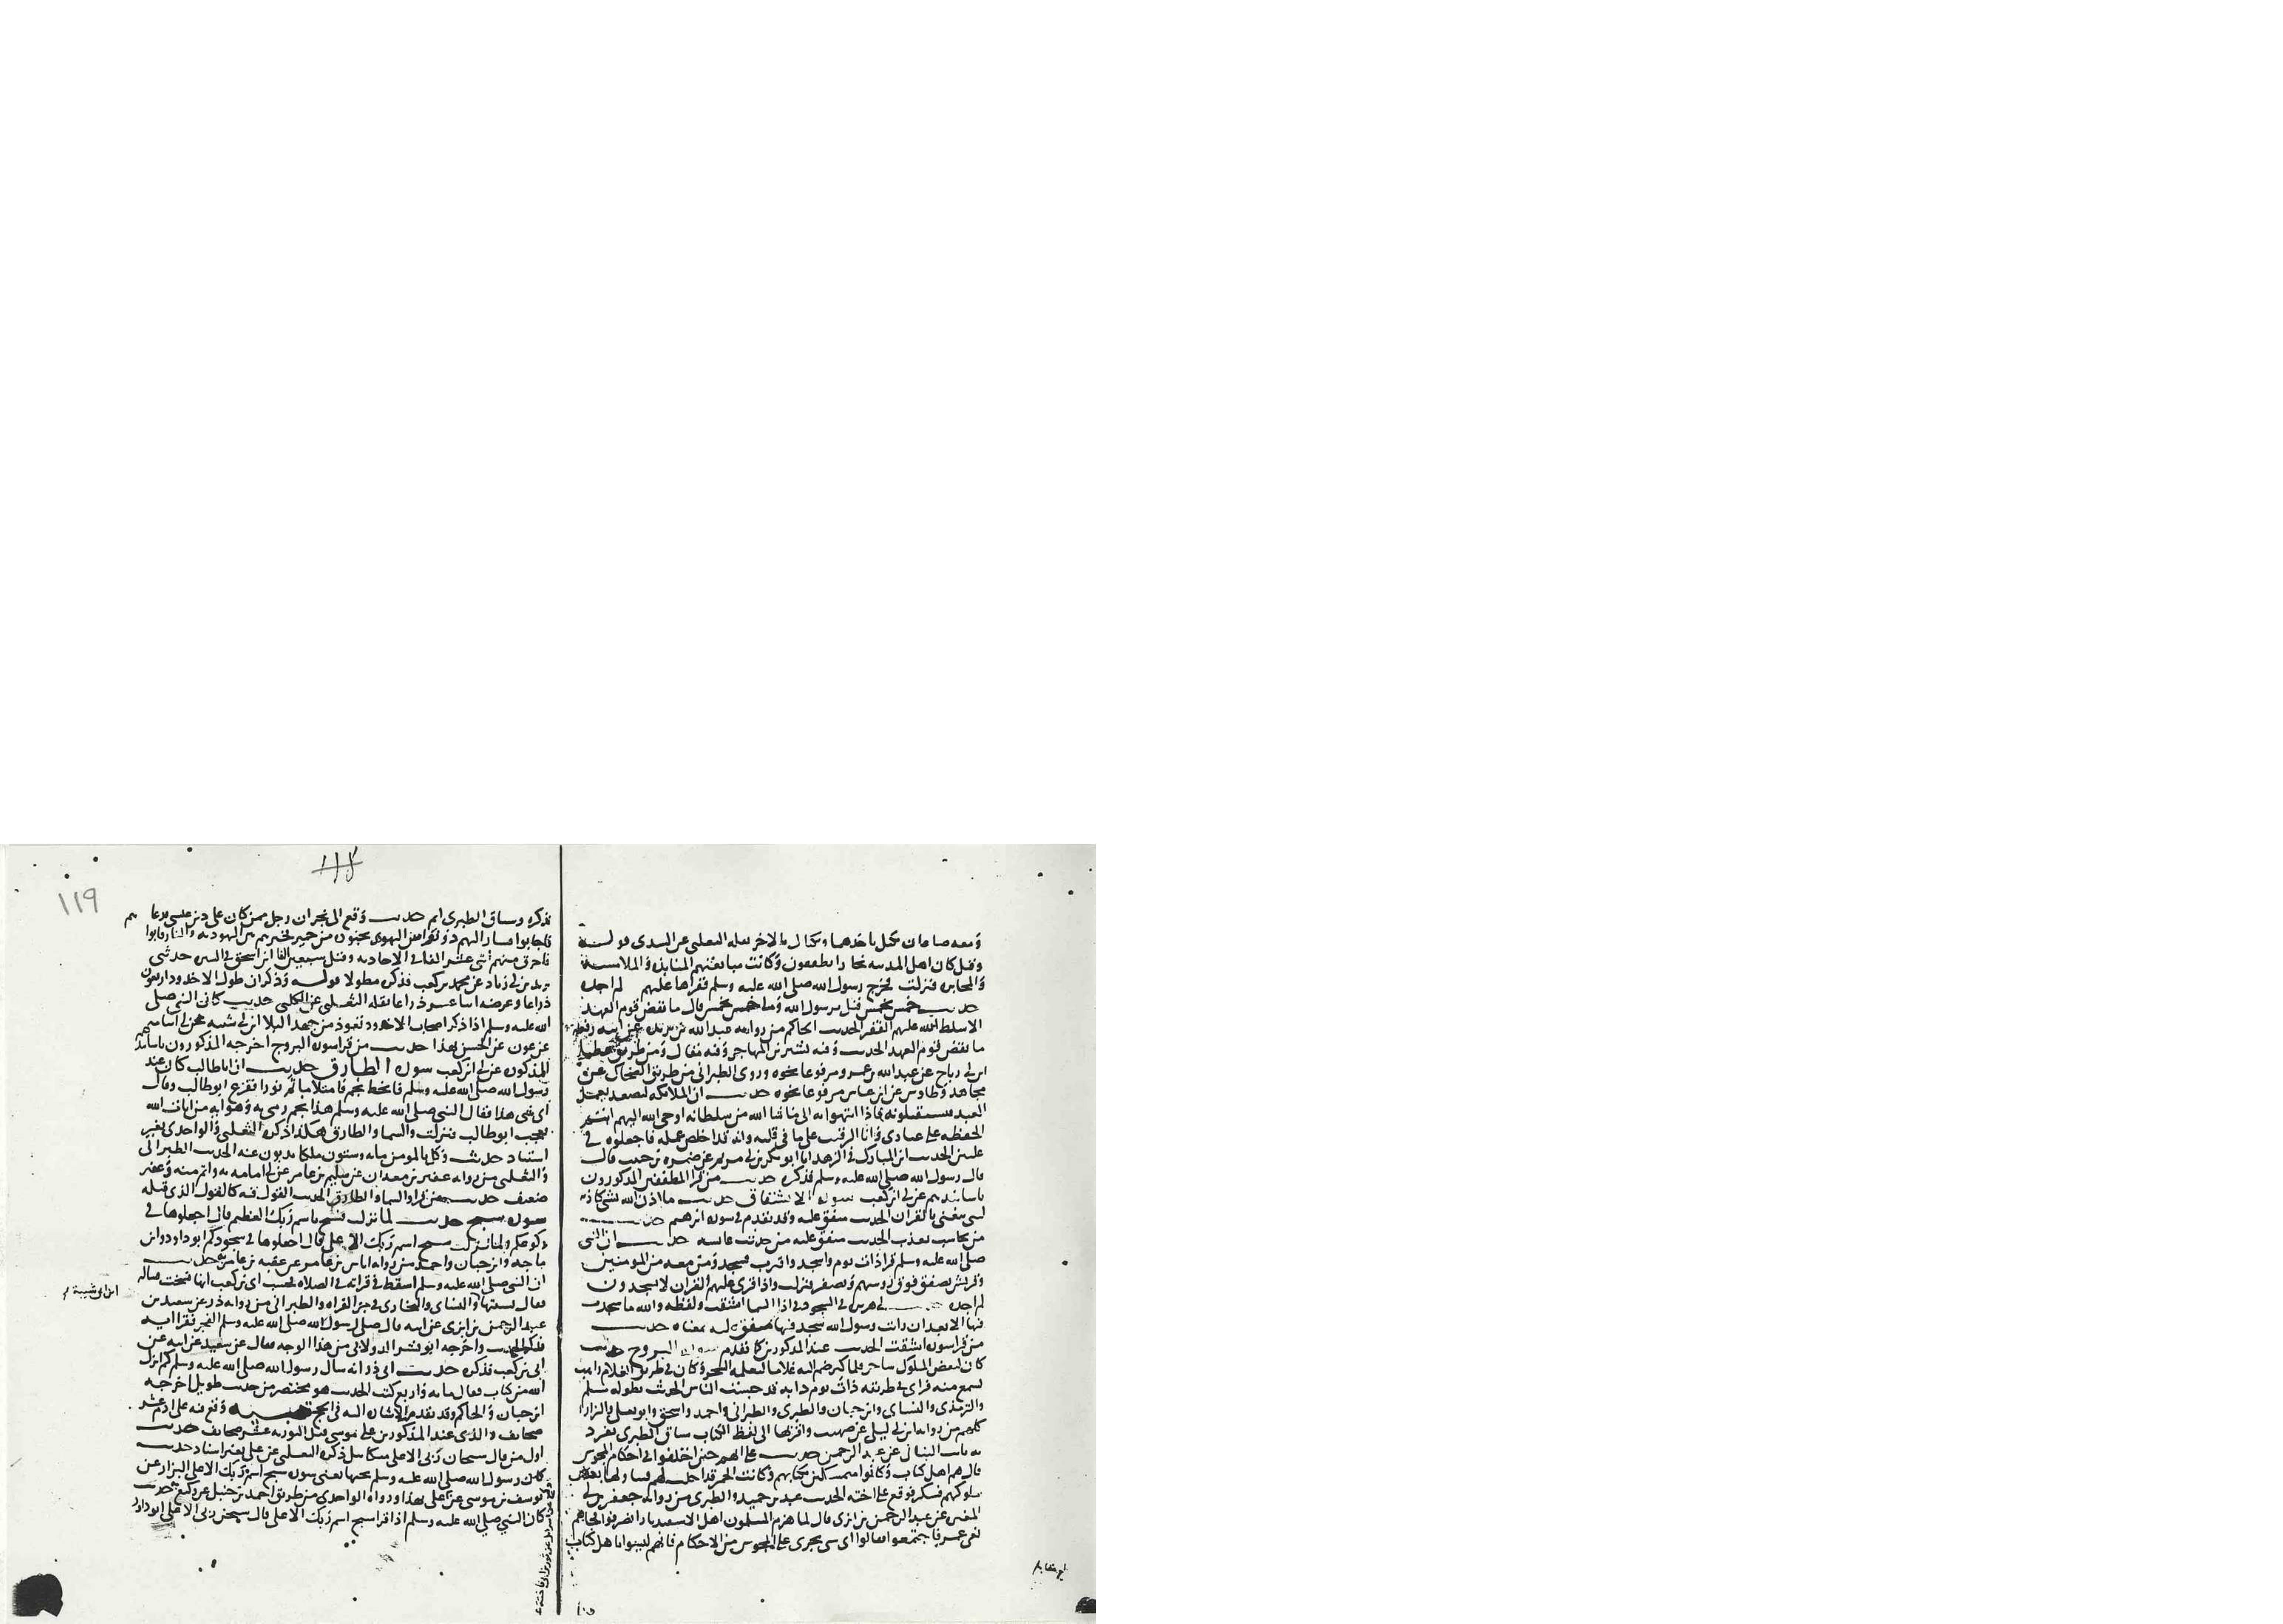 ومعه صاعان يكيل باحدهما ويكتال بالاخر نقله الثعلبى عن السدى قوله
وقيل كان اهل المدينه تجارا يطففون وكانت مبايعتهم المنابذه والملامسه
والمخابره فنزلت فخرج رسول الله صلى الله عليه وسلم فقراها عليهم لم اجده
حديث خمس بخمس قيل يرسول الله وما خمس بخمس قال ما نقض قوم العهد
الا سلط الله عليهم الفقر الحديث الحاكم من روايه عبدالله بن بريده عن ابيه رفعه
ما نقض قوم العهد الحديث وفيه بشير بن المهاجر وفيه مقال ومن طريق عطا
ابن ابى رباح عن عبدالله بن عمرو مرفوعا نحوه وروى الطبرانى من طريق الضحاك عن
مجاهد وطاوس عن ابن عباس مرفوعا نحوه حديث ان الملائكه لتصعد بعمل
العبد فيستقبلونه فاذا انتهوا به الى ما شا الله من سلطانه اوحى الله اليهم انتم
الحفظه على عبادى وانا الرقيب على ما فى قلبه وانه قد اخلص عمله فاجعلوه فى
عليين الحديث ابن المبارك فى الزهد انا ابو بكر بن ابى مريم عن ضمره بن حبيب قال
قال رسول الله صلى الله عليه وسلم فذكره حديث من قرا المطففين المذكورون
باسانيدهم عن ابى ابن كعب سورة الانشقاق حديث ما اذن الله لشى كاذنه
لنبى يتغنى بالقران الحديث متفق عليه وقد تقدم فى سوره ابرهيم حديث
من يحاسب يعذب الحديث متفق عليه من حديث عايشه حديث ان النبى
صلى الله عليه وسلم قرا ذات يوم واسجد واقترب فسجد ومن معه من المومنين
وقريش تصفق فوق روسهم وتصفر فنزلت واذا قرى عليهم القران لا يسجدون
لم اجده حديث ابى هريره فى السجود فى اذا السما انشقت ولفظه والله ما سجدت
فيها الا بعد ان رايت رسول الله يسجد فيها متفق عليه بمعناه حديث
من قرا سوره انشقت الحديث عند المذكورين كما تقدم سورة البروج حديث
كان لبعض الملوك ساحر فلما كبر ضم اليه غلاما ليعلمه السحر وكان فى طريق الغلام راهب
يسمع منه فراى فى طريقه ذات يوم دابه قد حبست الناس الحديث بطوله مسلم
والترمذى والنساى وابن حبان والطبرى والطبرانى واحمد واسحق وابو يعلى والبزار
كلهم من روايه ابن ابى ليلى عن صهيب واقربها الى لفظ الكتاب سياق الطبرى تفرد
به ثابت البنانى عن عبد الرحمن حديث على انهم حين اختلفوا فى احكام المجوس
قال هم اهل كتاب وكانوا متمسكين بكتابهم وكانت الخمر قد احلت لهم فتناولها بعض
ملوكهم فسكر فوقع على اخته الحديث عبد بن حميد والطبرى من روايه جعفر بن ابى
المغيره عن عبد الرحمن بن ابزى قال لما هزم المسلمون اهل الاسفيذيار انصرفوا فجاهم
نعى عمر فاجتمعوا فقالوا اى شى يجرى على المجوس من الاحكام فانهم ليسوا باهل كتاب
119
فذكره وساق الطبرى اتم حديث وقع الى نجران رجل ممن كان على دين عيسى فدعاهم
فاجابوا فسار اليهم ذو نواس اليهودى بجنود من حمير فخيرهم بين اليهوديه والنار فابوا
فاحرق منهم اثنى عشر الفا فى الاخاديد وقيل سبعين الفا ابن اسحق فى السيره حدثنى
يزيد بن ابى زياد عن محمد بن كعب فذكره مطولا قوله وذكر ان طول الاخدود اربعون
ذراعا وعرضه اثنا عشر ذراعا نقله الثعلبى عن الكلبى حديث كان النبى صلى
الله عليه وسلم اذا ذكر اصحاب الاخدود تعوذ من جهد البلا ابن ابى شيبه عن ابى اسامه
عن عون عن الحسن بهذا حديث من قرا سوره البروج اخرجه المذكورون باسانيدهم
المذكوره عن ابى ابن كعب سورة الطارق حديث ان ابا طالب كان عند
رسول الله صلى الله عليه وسلم فانحط نجم فامتلا ما ثم نورا ففزع ابو طالب وقال
اى شى هذا فقال النبى صلى الله عليه وسلم هذا نجم رمى به وهو ايه من ايات الله
فعجب ابو طالب فنزلت والسما والطارق هكذا ذكره الثعلبى والواحدى بغير
اسناد حديث وكل بالمومن مايه وستون ملكا يذبون عنه الحديث الطبرانى
والثعلبى من روايه عفير بن معدان عن سليم بن عامر عن ابى امامه به واتم منه وعفير
ضعيف حديث من قرا والسما والطارق الحديث القول فيه كالقول الذى قبله
سورة سبح حديث لما نزلت فسبح باسم ربك العظيم قال اجعلوها فى
ركوعكم ولما نزلت سبح اسم ربك الاعلى قال اجعلوها فى سجودكم ابو داود وابن
ماجه وابن حبان واحمد من روايه اياس بن عامر عن عقبه بن عامر به حديث
ان النبى صلى الله عليه وسلم اسقط فى قراته فى الصلاه فحسب ابى بن كعب انها نسخت فساله
فقال نسيتها والنساى والبخارى فى جز القراه والطبرانى من روايه ذر عن سعيد بن
ابن ابى شيبة
عبد الرحمن بن ابزى عن ابيه قال صلى رسول الله صلى الله عليه وسلم الفجر فقرا ايه
فذكر الحديث واخرجه ابو بشر الدولابى من هذا الوجه فقال عن سعيد عن ابيه عن
ابى بن كعب فذكره حديث ابى ذر انه سال رسول الله صلى الله عليه وسلم كم انزل
الله من كتاب فقال مايه واربع كتب الحديث هو مختصر من حديث طويل اخرجه
ابن حبان والحاكم وقد تقدمت الاشاره اليه فى الحج تنبيه وقع فيه على ادم عشر
صحايف والذى عند المذكورين على موسى قبل التوريه عشر صحايف حديث
اول من قال سبحان ربى الاعلى ميكاييل ذكره الثعلبى عن على بغير اسناد حديث
كان رسول الله صلى الله عليه وسلم يحبها يعنى سوره سبح اسم ربك الاعلى البزار عن
يوسف بن موسى عن على بهذا ورواه الواحدى من طريق احمد بن حنبل عن وكيع حديث
كان النبى صلى الله عليه وسلم اذا قرا سبح اسم ربك الاعلى قال سبحن ربى الاعلى ابو داود